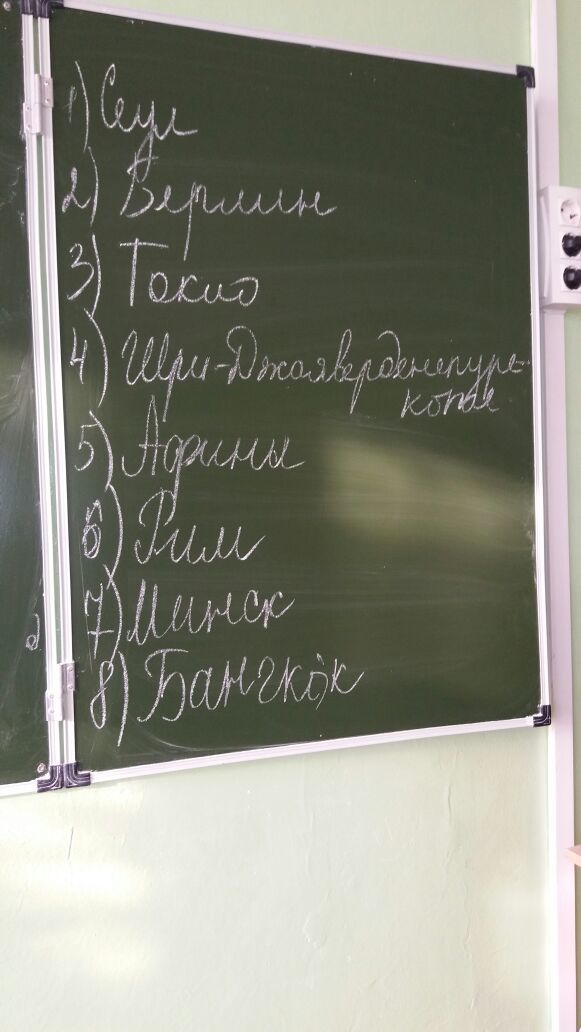 1) Сеул
2) Берлин
3) Токио
4) Шри-Джаяварденепуре-
котте
5) Афины
6) Рим
7) Минск
8) Бангкок